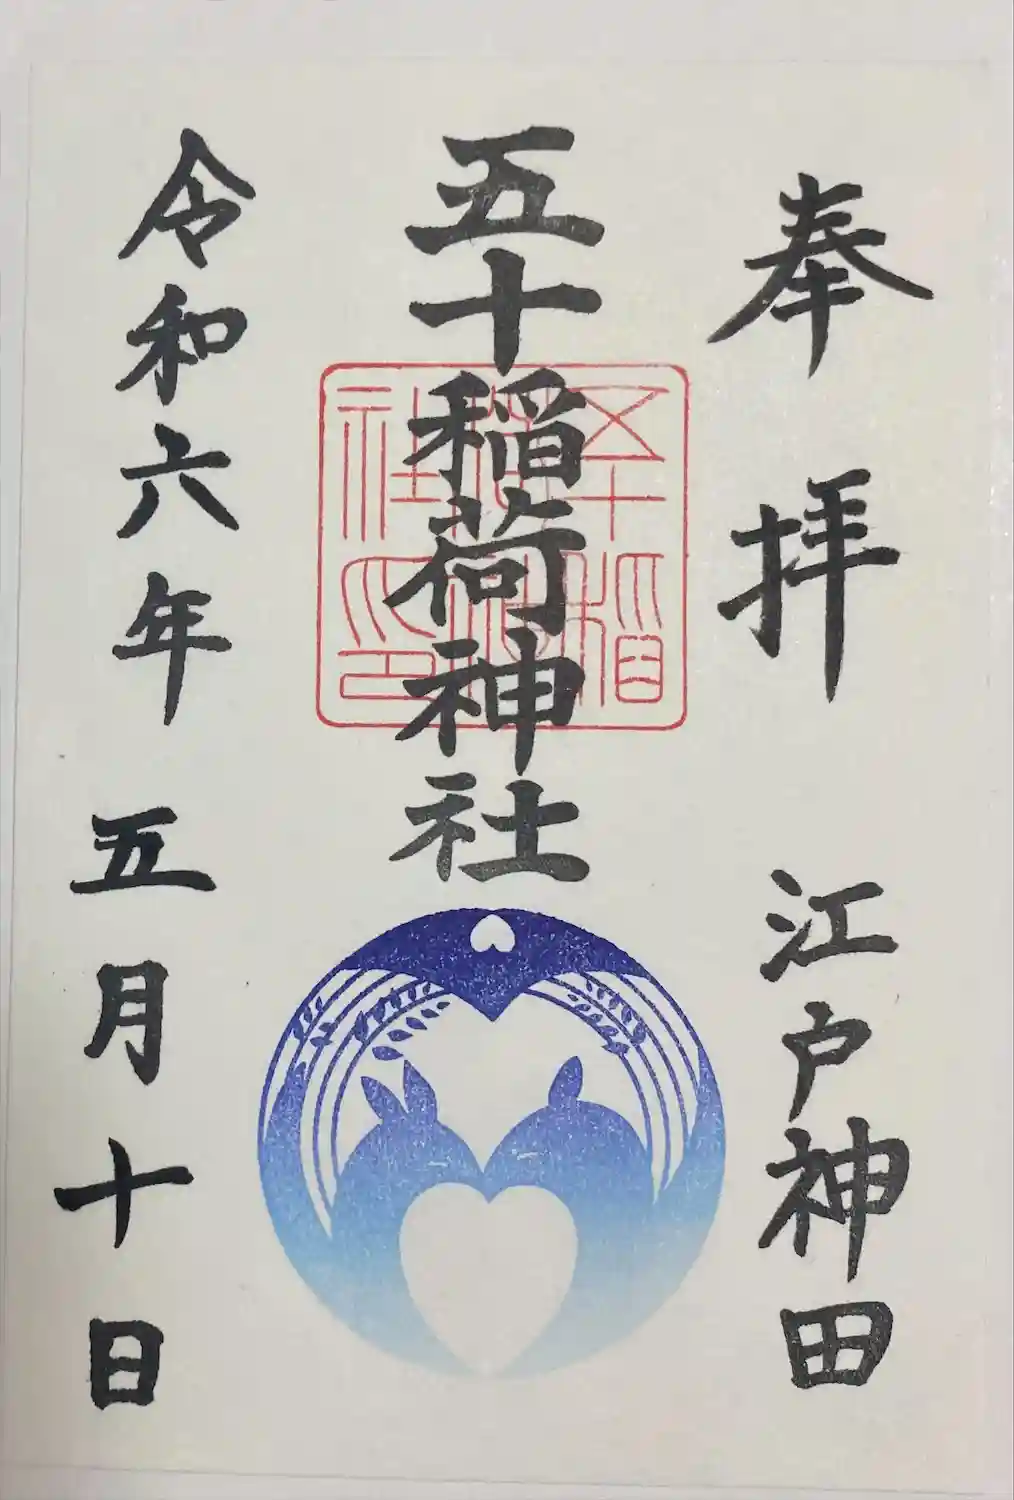 奉拝 江戸神田
五十稲荷神社
五十稲荷神社印
令和六年 五月十日